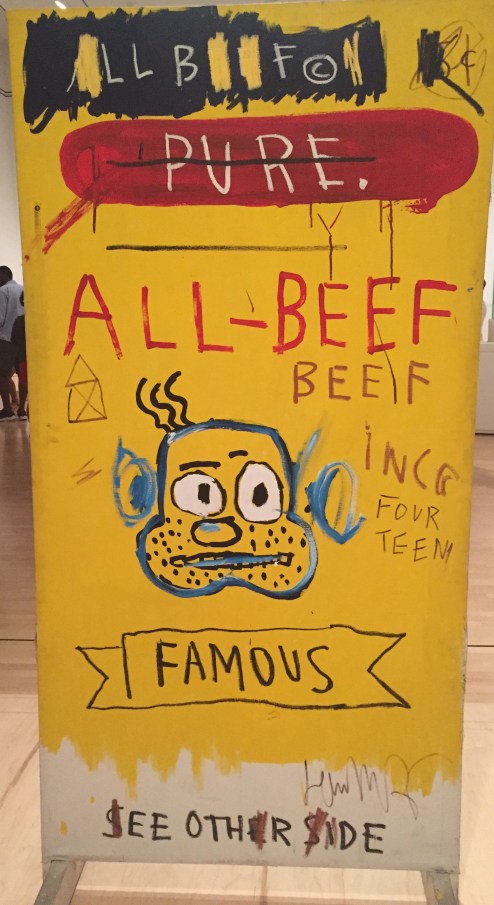 ALL BEEF©
PURE.
ALL-BEEF
BEEF
INCG
FOUR
TEEN
FAMOUS
SEE OTHER SIDE